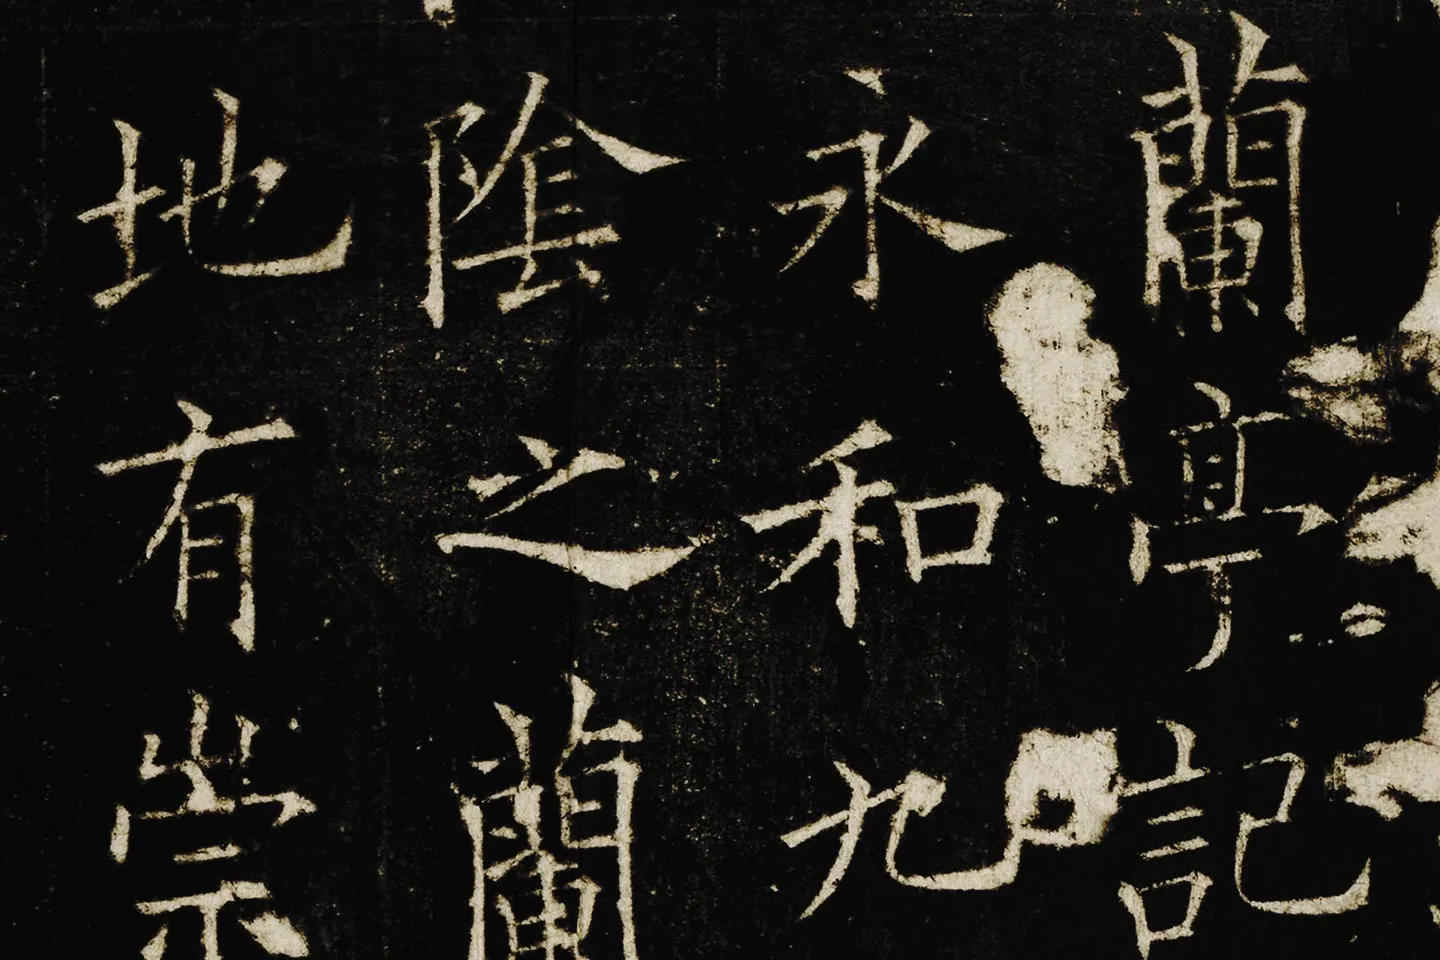 蘭亭記
永和九
陰之蘭
地有崇